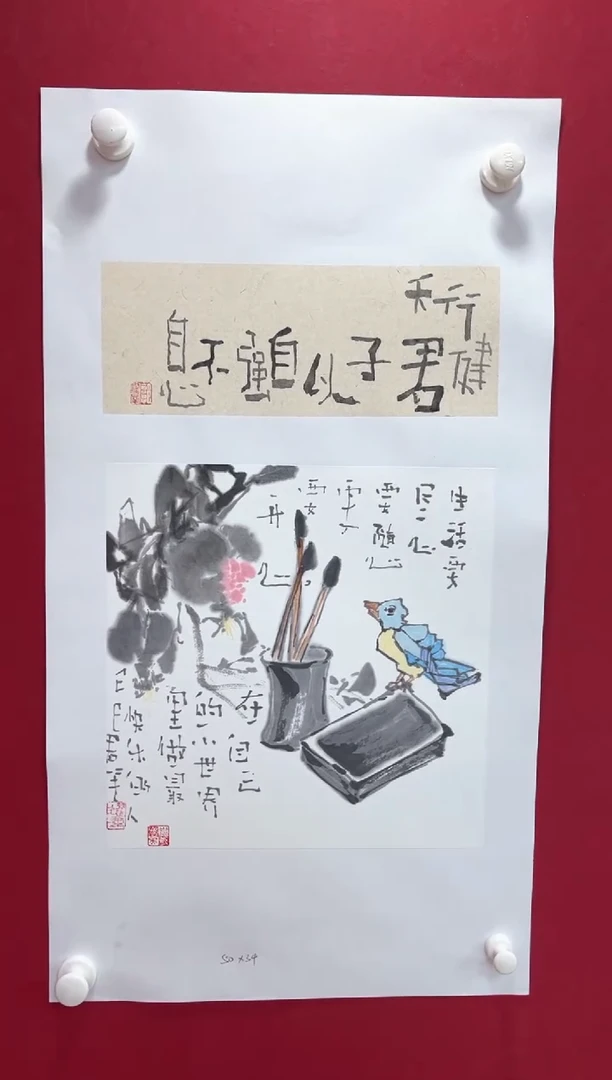 天行
健
君子以自强不息
生活要
心
要随心
要
开心
在
自己
的小世界
里做最
快乐的人
50×34